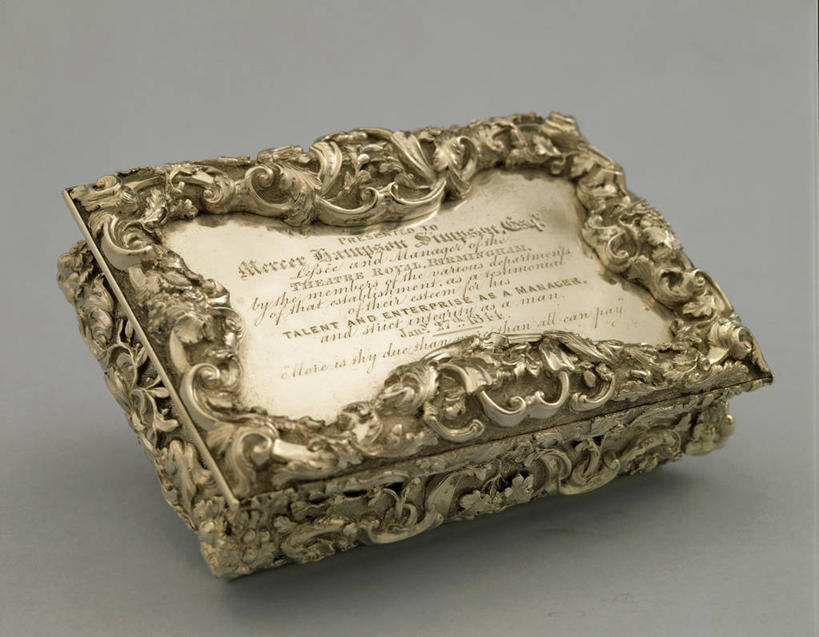 PRESENTED TO
Mercer Hampson Simpson Esqr.
Lessee and Manager of the
THEATRE ROYAL, BIRMINGHAM,
by the members of the various departments
of that establishment, as a testimonial
of their esteem for his
TALENT AND ENTERPRISE AS A MANAGER,
and strict integrity as a man.
Jany. 27th
"More is thy due than more than all can pay."